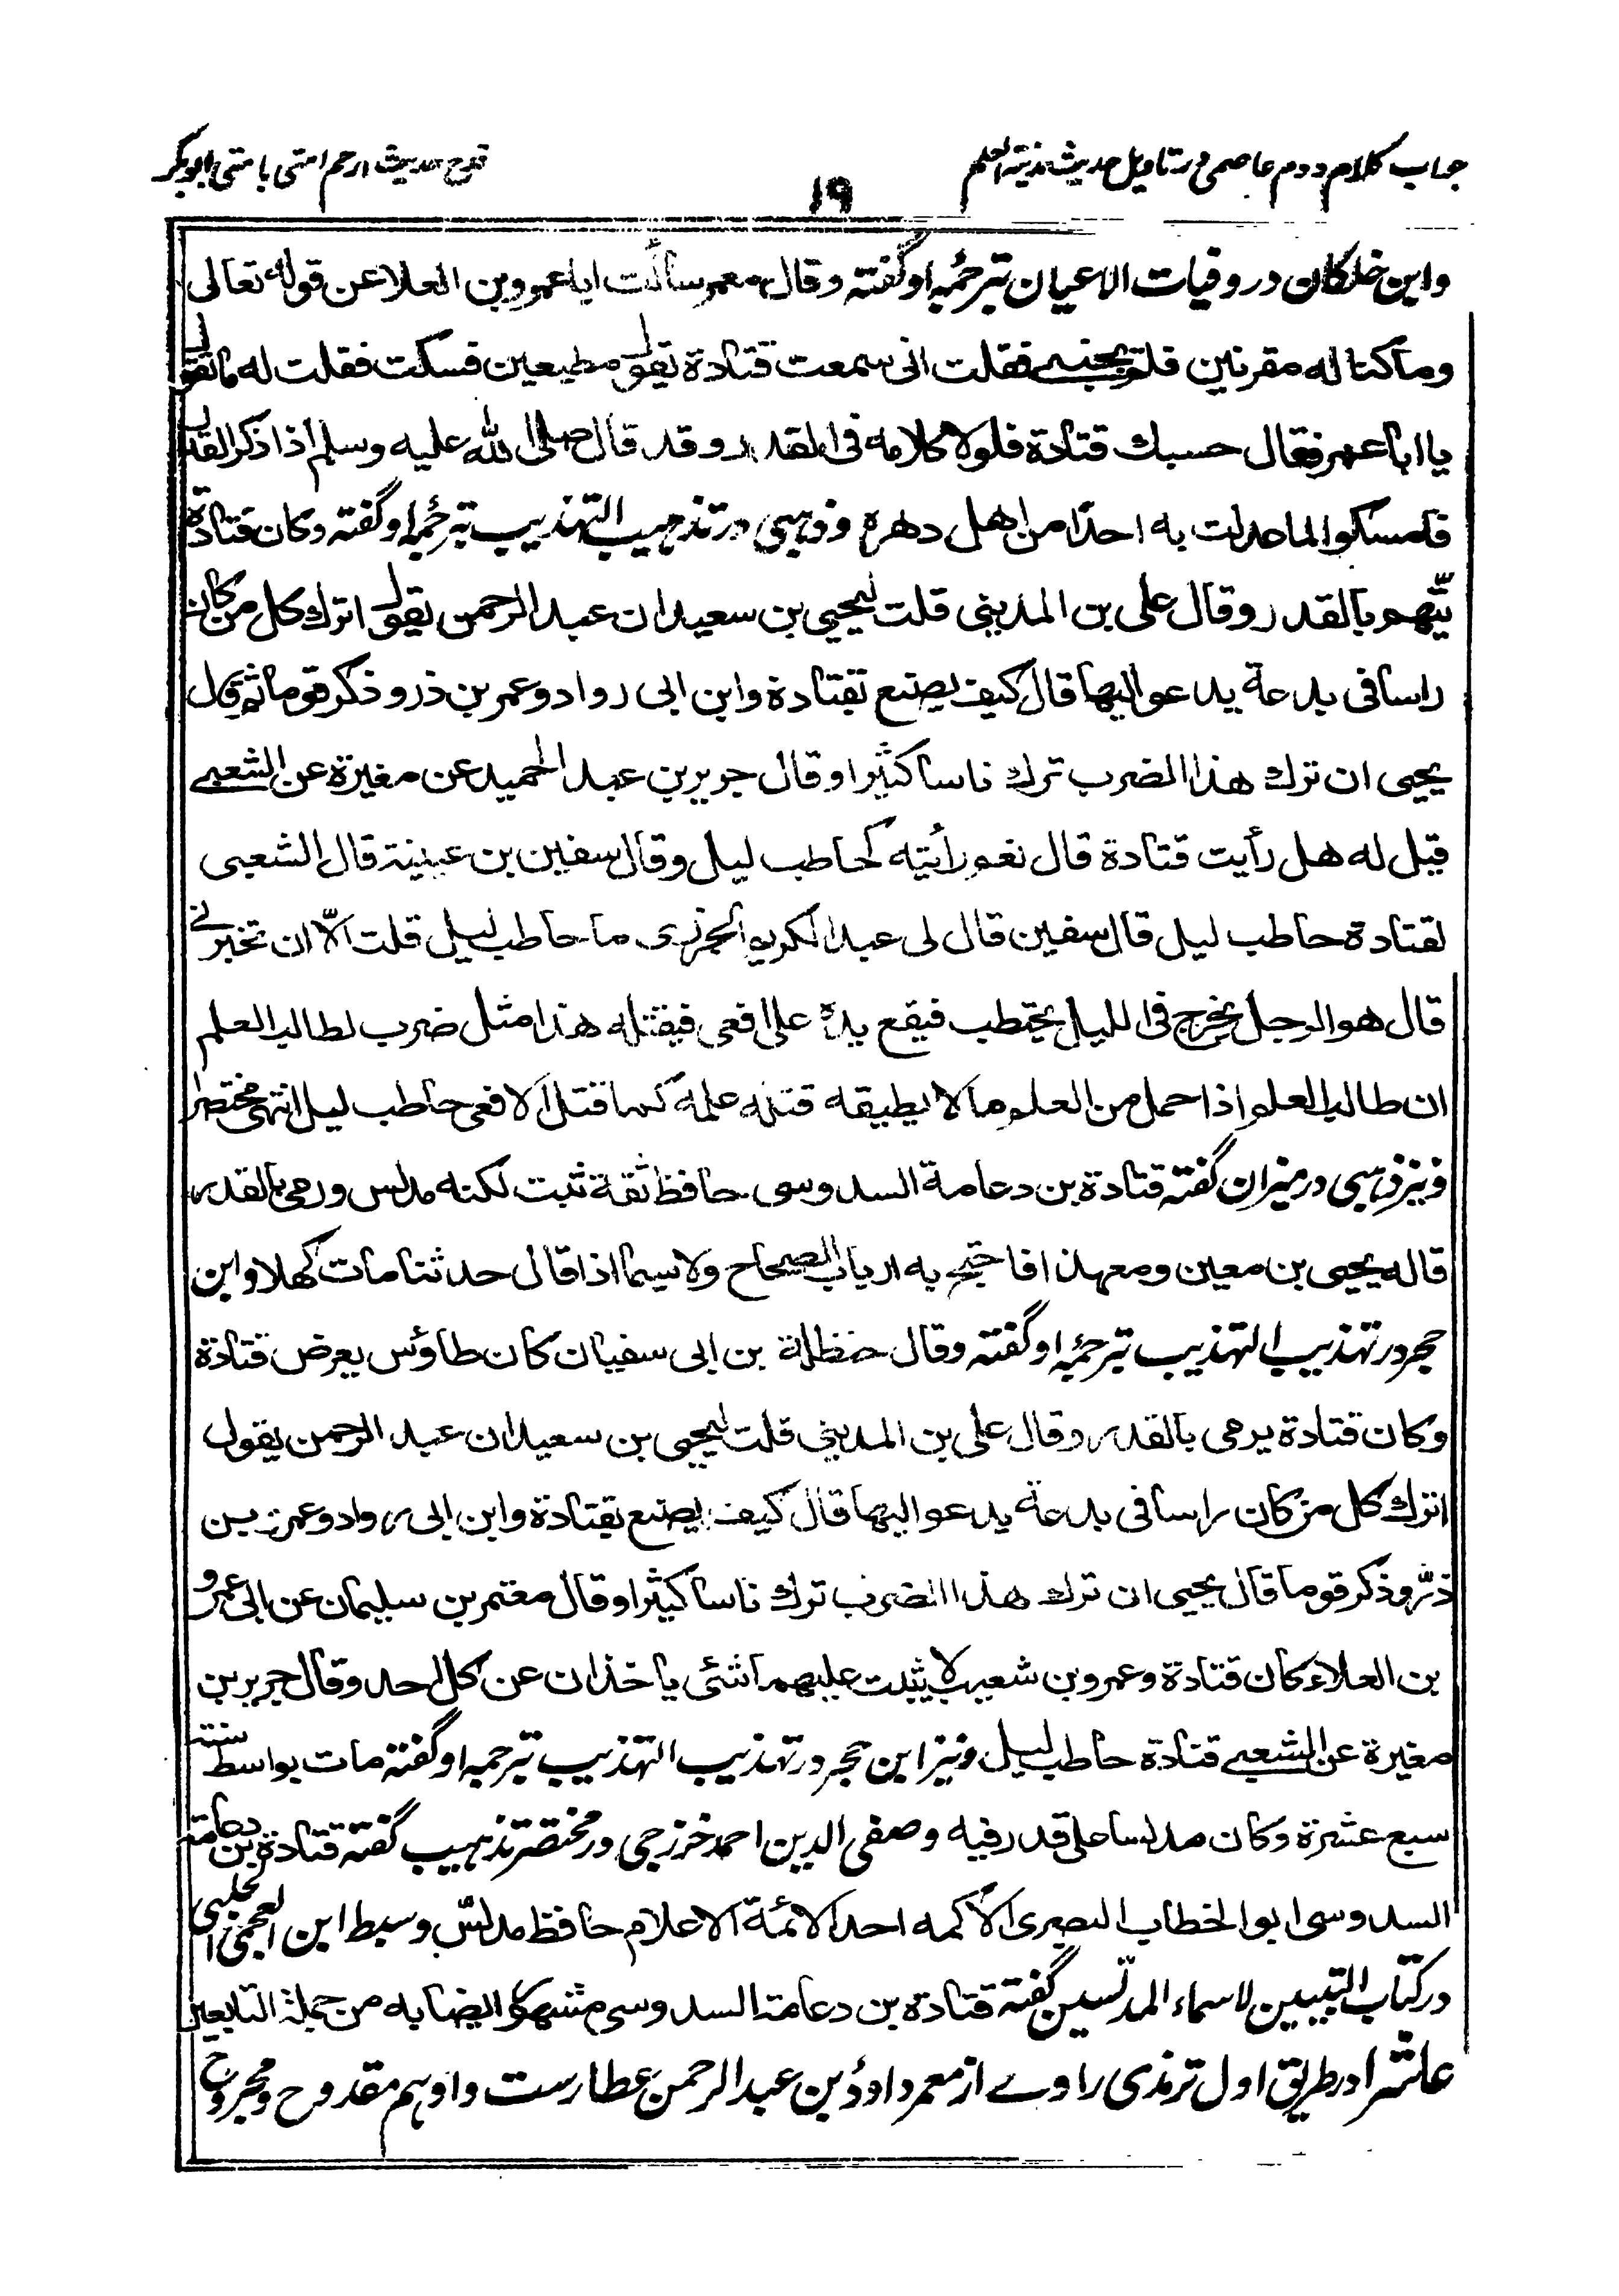 جواب کلام دوم عاصمی در تاویل حدیث مدینة العلم
۱۹
قدح حدیث ارحم امتی بامتی ابوبکر
وابن خلکان در وفیات الاعیان بترجمهٔ او گفته وقال معمر سألت ابا عمرو بن العلا عن قوله تعالی
وما کنا له مقرنین فلم یجبنی فقلت انی سمعت قتادة یقول مطیعین فسکت فقلت له ما تقول
یا ابا عمرو فقال حسبك قتادة فلولا کلامه فی القدر وقد قال صلی الله علیه وسلم اذا ذکر القدر
فامسکوا لما عدلت به احدًا من اهل دهره وذهبی در تذهیب التهذیب بترجمهٔ او گفته وکان قتادة
یتّهم بالقدر وقال علی بن المدینی قلت لیحیی بن سعید ان عبد الرحمن یقول اترك کل من کان
راسا فی بدعة یدعو الیها قال کیف یصنع بقتادة وابن ابی رواد وعمر بن ذر وذکر قوما ثم قال
یحیی ان ترك هذا الضرب ترك ناسا کثیرا وقال جریر بن عبد الحمید عن مغیرة عن الشعبی
قیل له هل رأیت قتادة قال نعم رأیته کحاطب لیل وقال سفین بن عیینة قال الشعبی
لقتادة حاطب لیل قال سفین قال لی عبد الکریم الجزری ما حاطب لیل قلت الّا ان تخبرنی
قال هو الرجل یخرج فی اللیل یحتطب فیقع یده علی افعی فیقتله هذا مثل ضرب لطالب العلم
ان طالب العلم اذا حمل من العلم ما لا یطیقه قتله علمه کما قتل الافعی حاطب لیل انتهی مختصرا
ونیز ذهبی در میزان گفته قتادة بن دعامة السدوسی حافظ ثقة ثبت لکنه مدلس ورمی بالقدر
قاله یحیی بن معین ومع هذا فاحتج به ارباب الصحاح ولا سیما اذا قال حدثنا مات کهلا وابن
حجر در تهذیب التهذیب بترجمهٔ او گفته وقال حنظلة بن ابی سفیان کان طاؤس یعرض قتادة
وکان قتادة یرمی بالقدر وقال علی بن المدینی قلت لیحیی بن سعید ان عبد الرحمن یقول
اترك کل من کان راسا فی بدعة یدعو الیها قال کیف یصنع بقتادة وابن ابی رواد وعمر بن
ذرّ وذکر قوما قال یحیی ان ترك هذا الضرب ترك ناسا کثیرا وقال معتمر بن سلیمان عن ابی عمرو
بن العلاء کان قتادة وعمرو بن شعیب لا یثبت علیهما شئی یاخذان عن کل احد وقال جریر بن
مغیرة عن الشعبی قتادة حاطب لیل ونیز ابن حجر در تهذیب التهذیب بترجمه او گفته مات بواسط سنة
سبع عشرة وکان مدلسا علی قدر فیه وصفی الدین احمد خزرجی در مختصر تذهیب گفته قتادة بن دعامة
السدوسی ابو الخطاب البصری الاکمه احد الائمة الاعلام حافظ مدلسّ وسبط ابن العجمی الحلبی
در کتاب التبیین لاسماء المدلّسین گفته قتادة بن دعامة السدوسی مشهور ایضا به من جملة التابعین
عاشرا در طریق اول ترمذی راوے از معمر داودُ بن عبد الرحمن عطارست واو هم مقدوح ومجروح